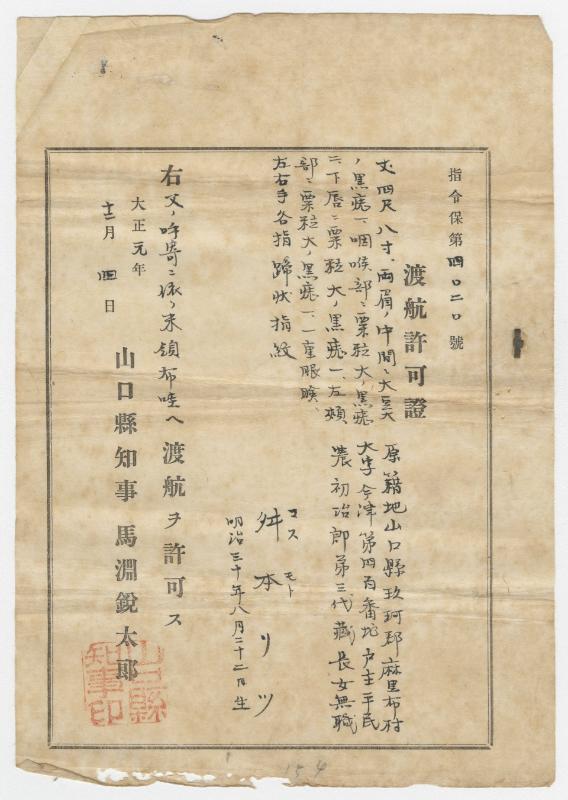 指令保第四〇二〇號
渡航許可證
丈四尺八寸、両眉ノ中間ニ大豆大
ノ黒痣一、咽喉部ニ粟粒大ノ黒痣
二、下唇ニ粟粒大ノ黒痣一、左頬
部ニ粟粒大ノ黒痣一、一重眼瞼、
左右手各指蹄状指紋
原籍地山口縣玖珂郡麻里布村
大字今津第四百番地戸主平民
農初治郎第三代藏長女無職
舛本リツ
マス モト
明治三十年八月二十二日生
右父ノ呼寄ニ依リ米領布哇へ渡航ヲ許可ス
大正元年
十二月四日
山口縣知事馬淵鋭太郎
山口縣
知事印
154